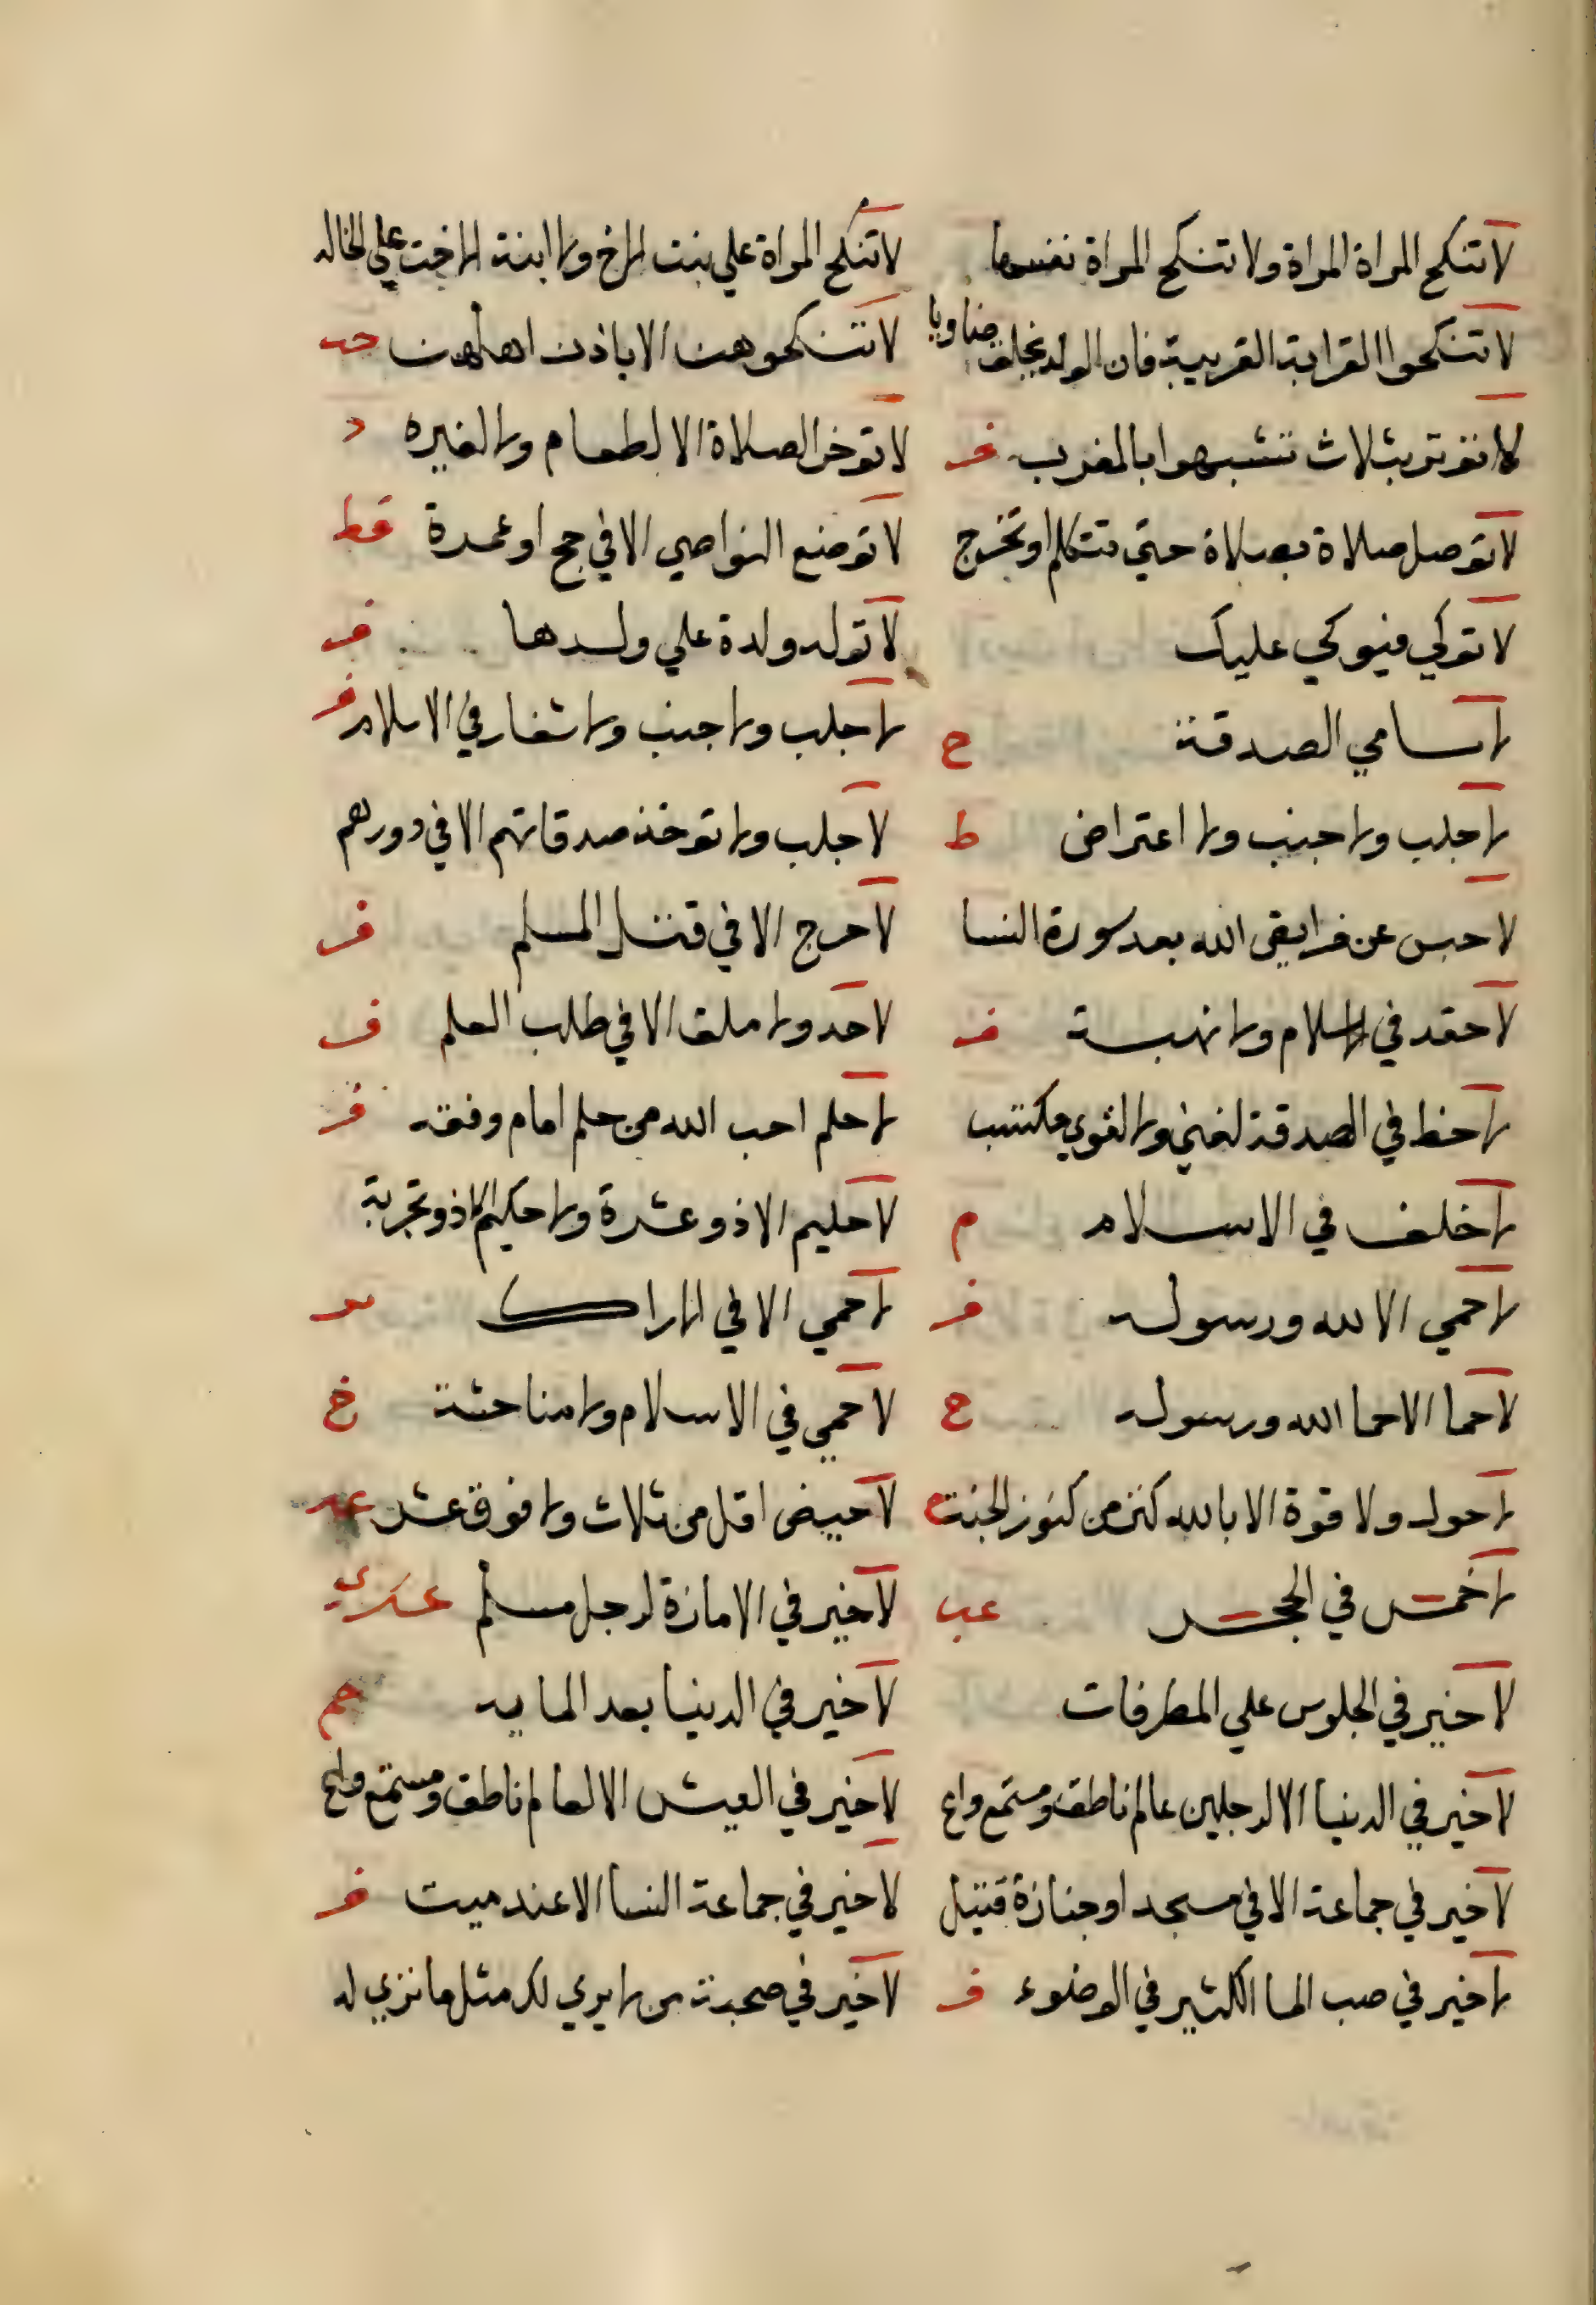 لا تنكح المراة المراة ولا تنكح المراة نفسها
لا تنكح المراة علي بنت الاخ ولا ابنة الاخت علي الخاله
لا تنكحوا القرابة القريبة فان الولد يخلق ضاويا
لا تنكحوهن الا باذن اهلهن حب
لا توتر بثلاث تشبهوا بالمغرب
لا توخر الصلاة الا لطعام ولا لغيره د
لا توصل صلاة بصلاة حتي تتكلم او تخرج
لا توضع النواصي الا في حج او عمرة قط
لا توكي فيوكي عليك
لا توله ولدة علي ولدها
لا اسامي الصدقة ح
لا جلب ولا جنب ولا شغار في الاسلام
لا جلب ولا جنب ولا اعتراض ط
لا جلب ولا توخذ صدقاتهم الا في دورهم
لا حبس عن فرايض الله بعد سورة النسا
لا حرج الا في قتل المسلم
لا حقد في الاسلام ولا نهبة
لا حد ولا ملق الا في طلب العلم
لا حظ في الصدقة لغني ولا لقوي مكتسب
لا حلم احب الله من حلم امام وفقه
لا حلف في الاسلام م
لا حليم الا ذو عشرة ولا حكيم الا ذو تجربة
لا حمي الا لله ورسوله
لا حمي الا في الاراك
لا حما الا حما الله ورسوله ح
لا حمي في الاسلام ولا مناحشة خ
لا حول ولا قوة الا بالله كنز من كنوز الجنة
لا حيض اقل من ثلاث ولا فوق عشر
لا خمس في الحجر عب
لا خير في الامارة لرجل مسلم
لا خير في الجلوس علي المطرفات
لا خير في الدنيا بعد المايه حم
لا خير في الدنيا الا لرجلين عالم ناطق ومستمع واع
لا خير في العيش الا لعالم ناطق ومستمع واع
لا خير في جماعة الا في مسجد او جنازة قتيل
لا خير في جماعة النسا الا عند ميت
لا خير في صب الما الكثير في الوضوء
لا خير في صحبة من لا يري لك مثل ما تري له